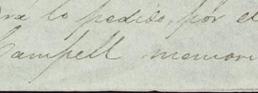 lo pedido, por el
Campell memori